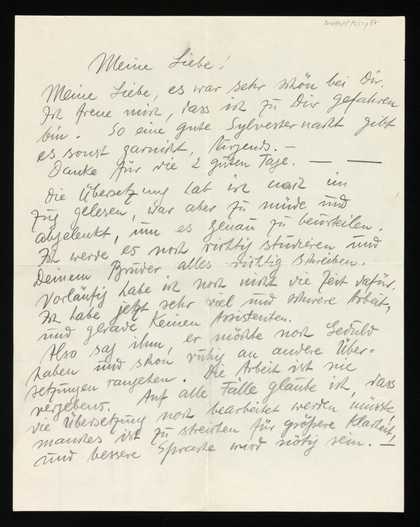 Meine Liebe!
Meine Liebe, es war sehr schön bei Dir.
Ich freue mich, dass ich zu Dir gefahren
bin. So eine gute Sylvesternacht gibt
es sonst garnicht, nirgends. —
Danke für die 2 guten Tage. — —
Die Übersetzung hab ich noch im
Zug gelesen, war aber zu müde und
abgelenkt, um es genau zu beurteilen.
Ich werde es noch richtig studieren und
Deinem Bruder alles richtig schreiben.
Vorläufig habe ich noch nicht die Zeit dafür.
Ich habe jetzt sehr viel und schwere Arbeit,
und gerade keinen Assistenten.
Also sag ihm, er möchte noch Geduld
haben und schon ruhig an andere Über-
setzungen rangehen. Die Arbeit ist nie
vergebens. Auf alle Fälle glaube ich, dass
die Übersetzung noch bearbeitet werden müsste,
manches ist zu streichen für größere Klarheit,
und bessere Sprache wird nötig sein. —